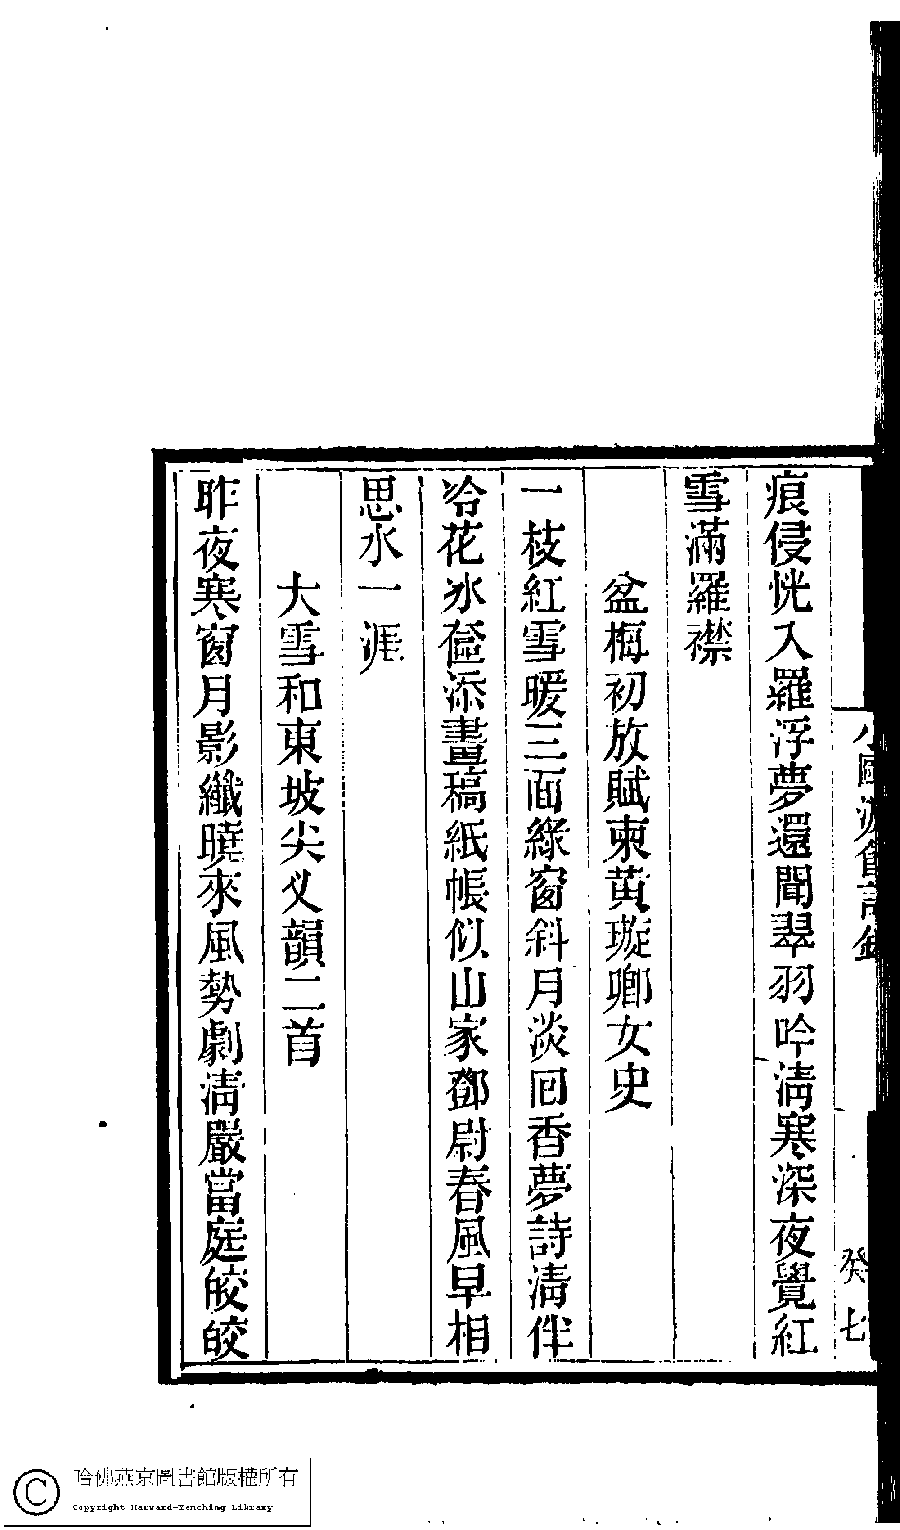 癸七
痕侵恍入羅浮夢還聞翠羽吟清寒深夜覺紅
雪滿羅襟
盆梅初放賦柬黄璇卿女史
一枝紅雪暖三面綠窗斜月淡囘香夢詩清伴
冷花冰奩添畫稿紙帳似山家鄧尉春風早相
思水一涯
大雪和東坡尖义韻二首
昨夜寒窗月影纖曉來風勢劇清嚴當庭皎皎
哈佛燕京圖書館版權所有
Copyright Harvard-Yenching Library